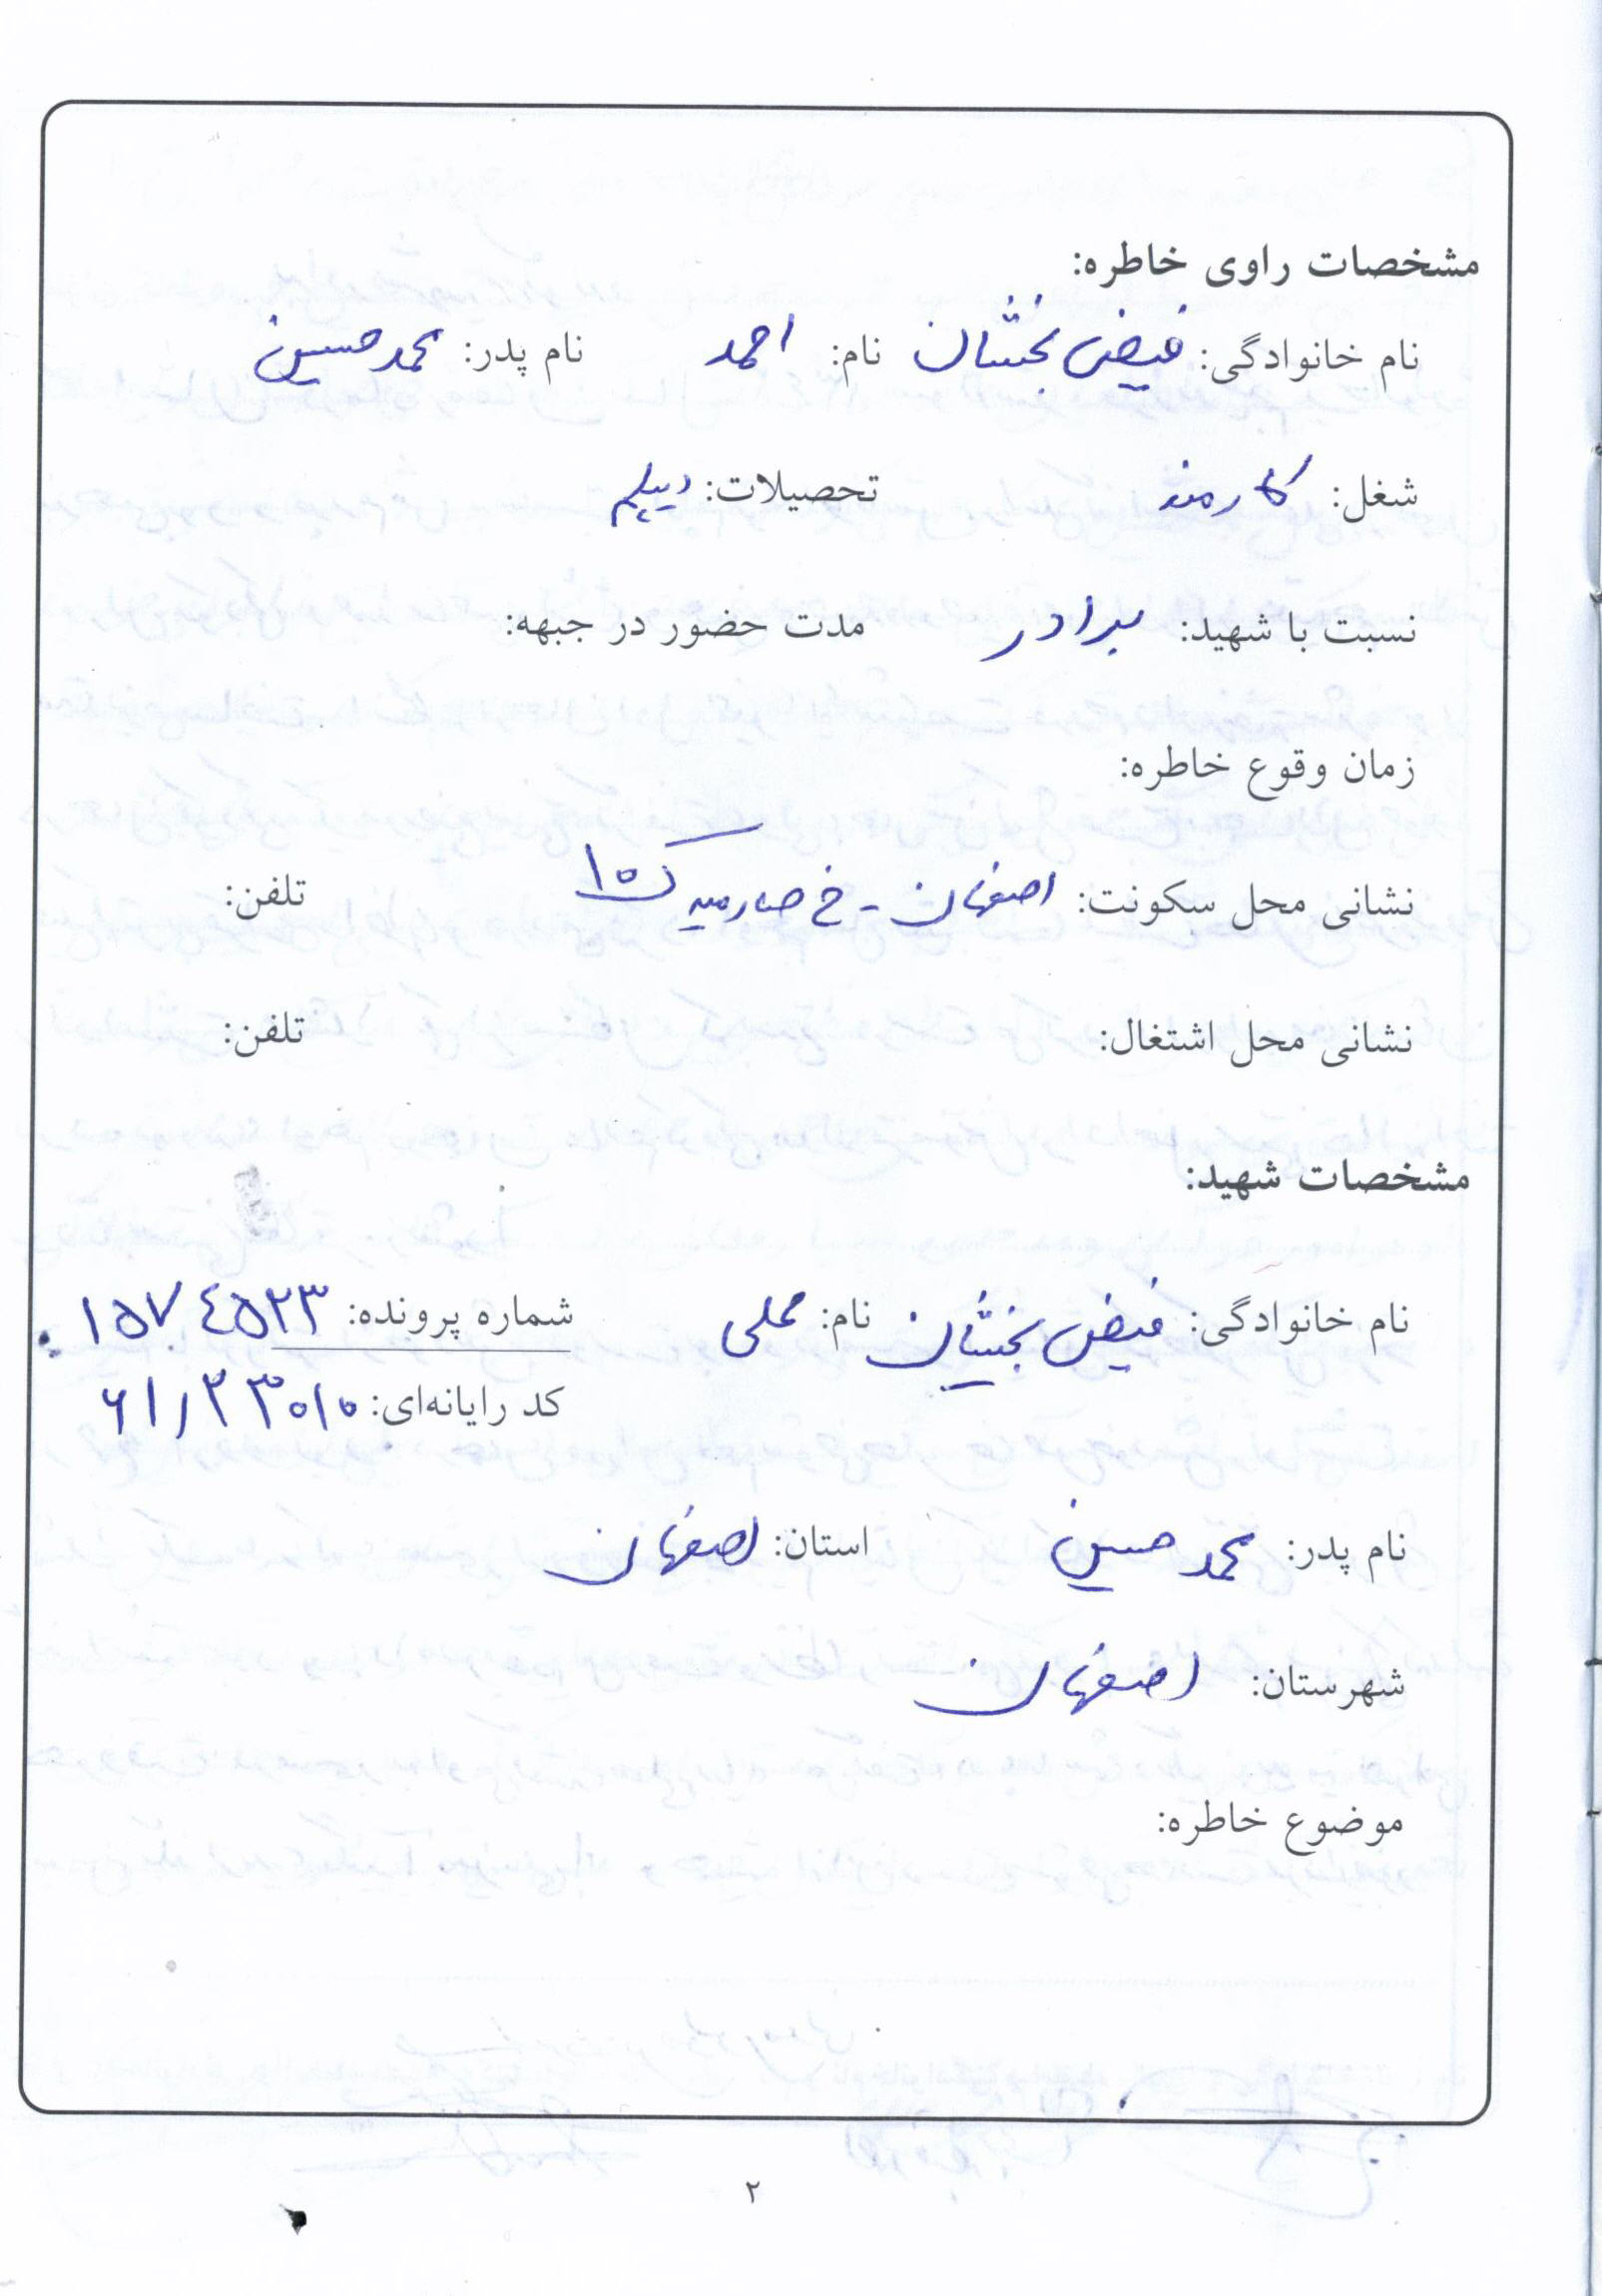 مشخصات راوی خاطره:
نام خانوادگی: فیض بخشان نام: احمد نام پدر: محمدحسین
شغل: کارمند تحصیلات: دیپلم
نسبت با شهید: برادر مدت حضور در جبهه:
زمان وقوع خاطره:
نشانی محل سکونت: اصفهان - خ صارمیه ک ۱۵ تلفن:
نشانی محل اشتغال: تلفن:
مشخصات شهید:
نام خانوادگی: فیض بخشان نام: شماره پرونده: ۱۵۷۴۵۲۳
کد رایانه‌ای:
نام پدر: محمدحسین استان: اصفهان
شهرستان: اصفهان
موضوع خاطره:
۲